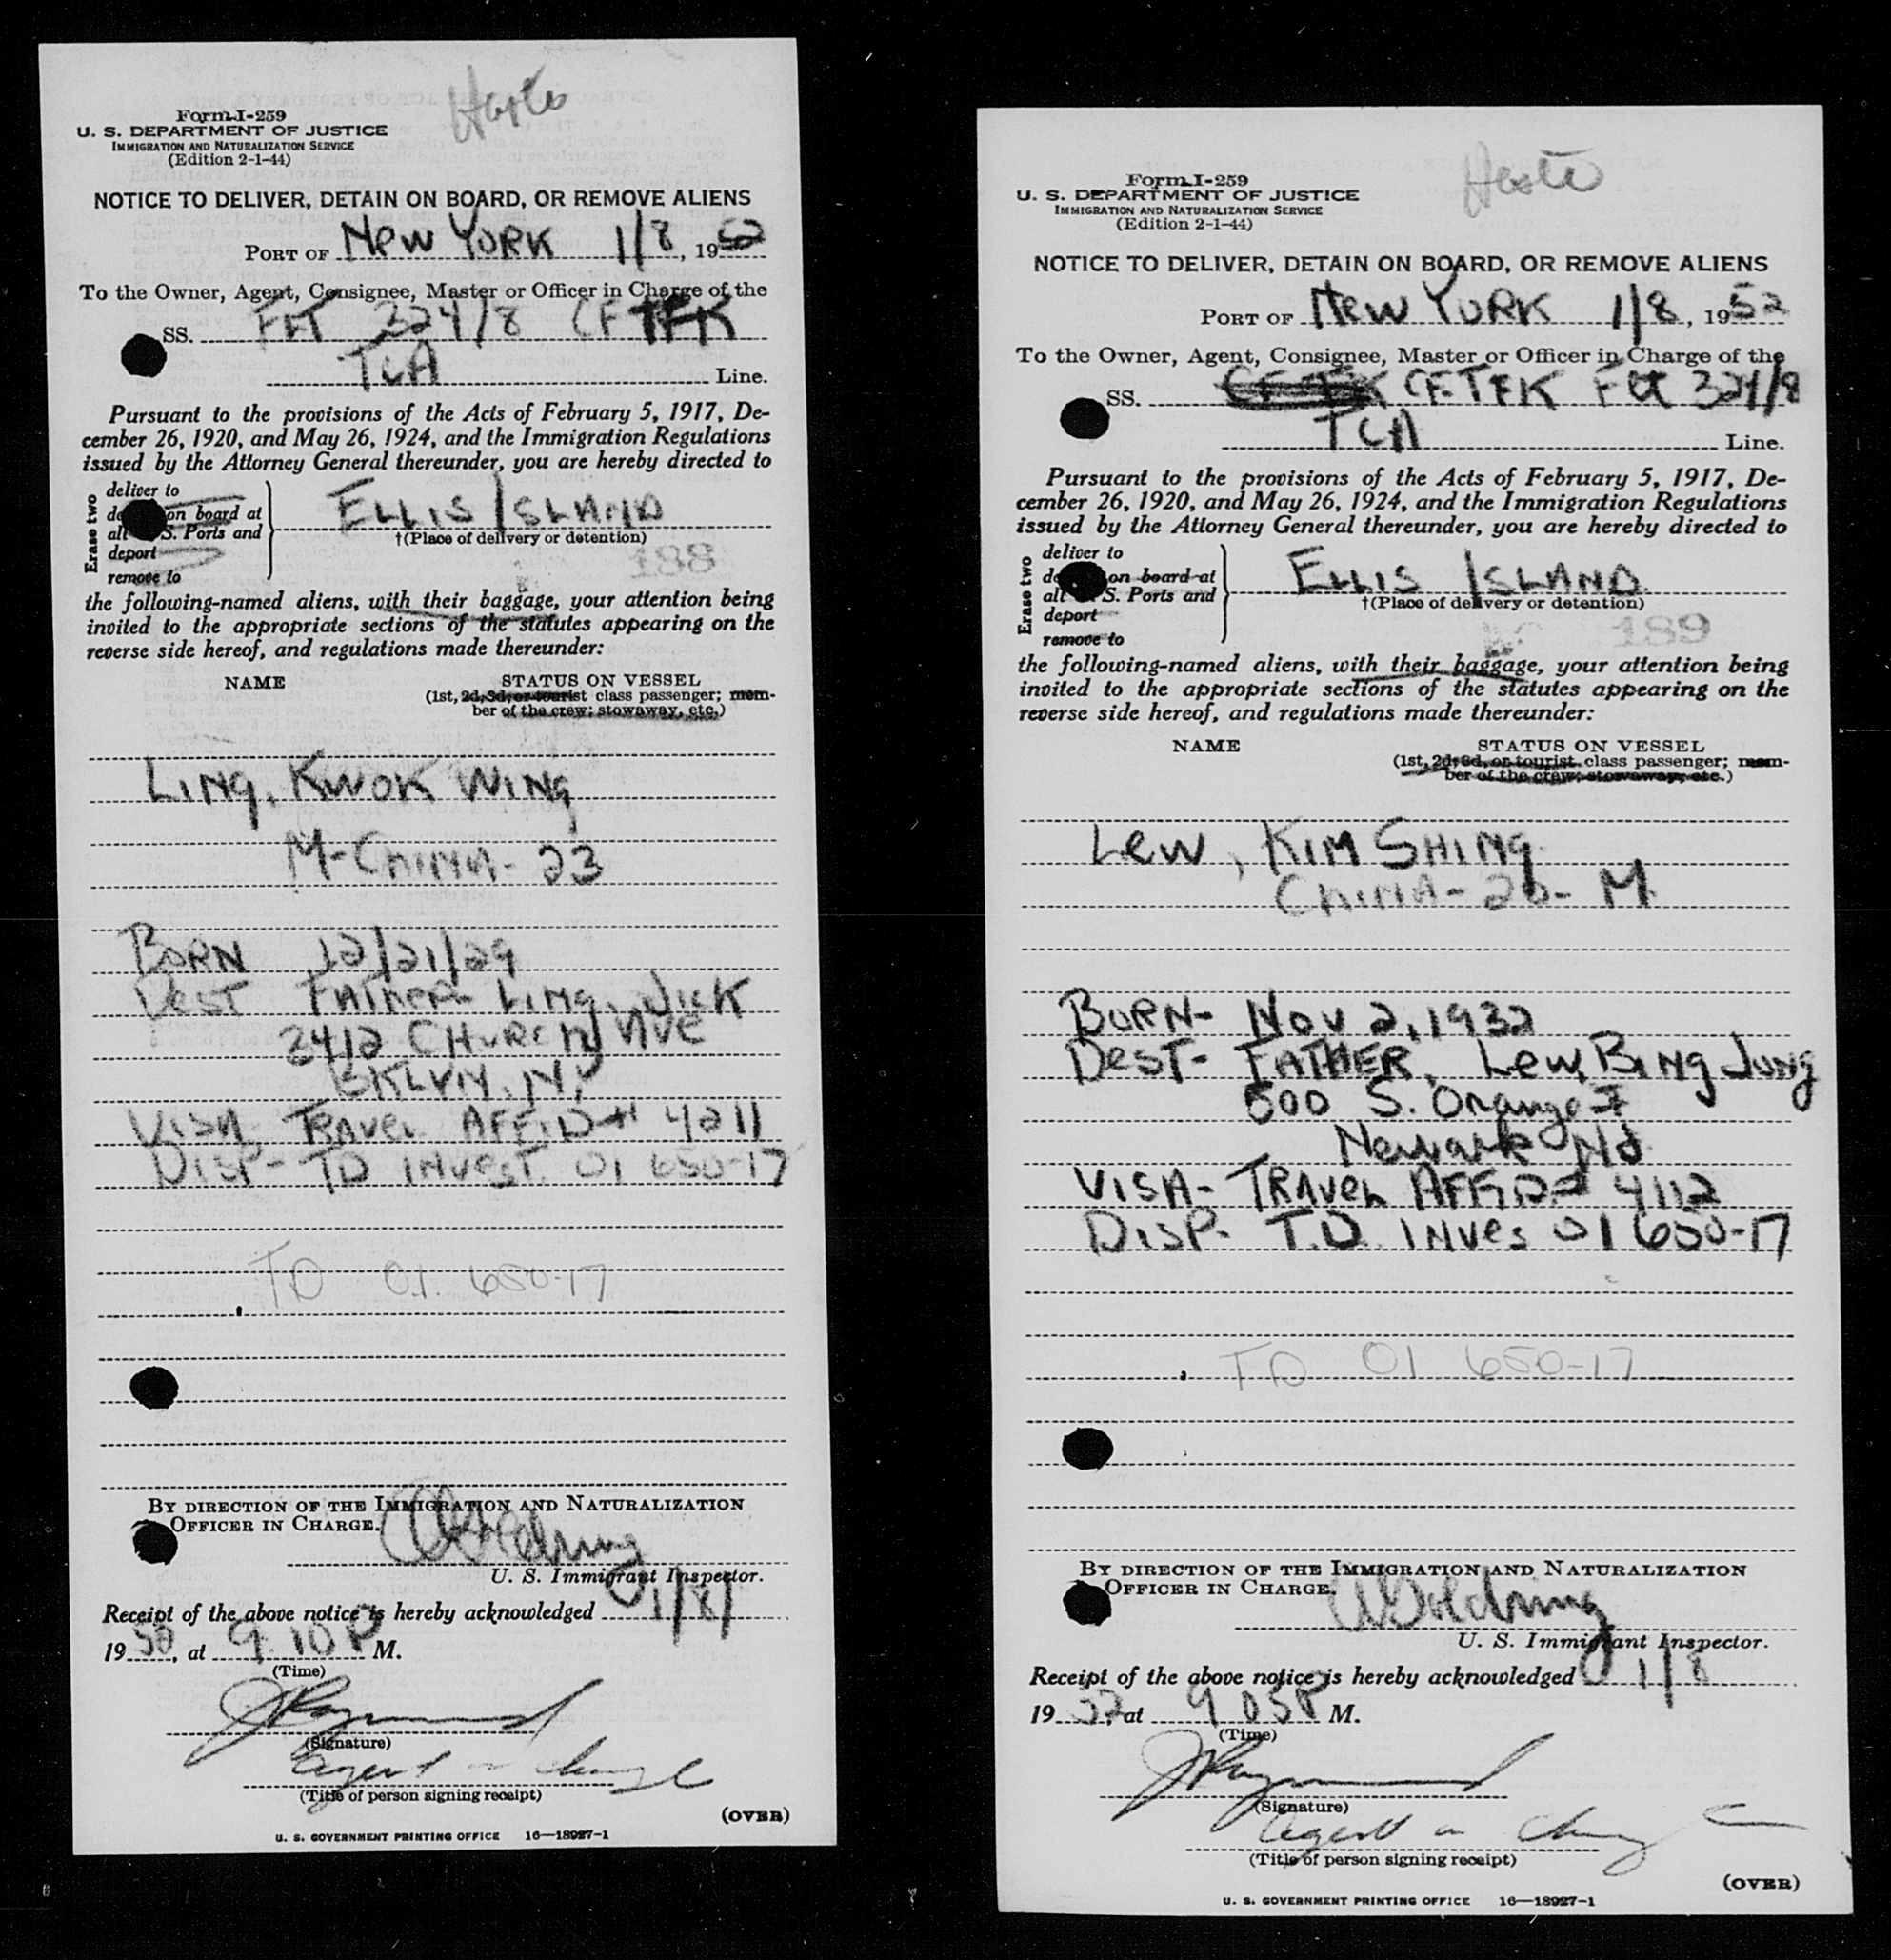 Form I-259
U. S. DEPARTMENT OF JUSTICE
IMMIGRATION AND NATURALIZATION SERVICE
(Edition 2-1-44)
NOTICE TO DELIVER, DETAIN ON BOARD, OR REMOVE ALIENS
PORT OF NEW YORK 1/8, 1952
To the Owner, Agent, Consignee, Master or Officer in Charge of the
SS. FLT 324/8 CFTFK
TCA Line.
Pursuant to the provisions of the Acts of February 5, 1917, De-
cember 26, 1920, and May 26, 1924, and the Immigration Regulations
issued by the Attorney General thereunder, you are hereby directed to
Erase two
deliver to
on board at
S. Ports and
deport
remove to
ELLIS ISLAND
†(Place of delivery or detention)
188
the following-named aliens, with their baggage, your attention being
invited to the appropriate sections of the statutes appearing on the
reverse side hereof, and regulations made thereunder:
NAME STATUS ON VESSEL
(1st, 2d, 3d, or tourist class passenger; mem-
ber of the crew; stowaway, etc.)
LING, KWOK WING
M-CHINA-23
BORN 12/21/29
DEST FATHER- LING, JICK
2412 CHURCH AVE
BKLYN. N.Y
VISA TRAVEL AFFID# 4211
DISP- TD INVEST. 01 650-17
TD 01. 650-17
BY DIRECTION OF THE IMMIGRATION AND NATURALIZATION
OFFICER IN CHARGE.
U. S. Immigrant Inspector.
Receipt of the above notice is hereby acknowledged 1/8/
1952, at 9.10 P M.
(Time)
J Raymond
(Signature)
Agent in charge
(Title of person signing receipt)
(OVER)
U. S. GOVERNMENT PRINTING OFFICE 16—18927-1
Form I-259
U. S. DEPARTMENT OF JUSTICE
IMMIGRATION AND NATURALIZATION SERVICE
(Edition 2-1-44)
NOTICE TO DELIVER, DETAIN ON BOARD, OR REMOVE ALIENS
PORT OF NEW YORK 1/8, 1952
To the Owner, Agent, Consignee, Master or Officer in Charge of the
SS. CFTFK FLT 324/8
TCA Line.
Pursuant to the provisions of the Acts of February 5, 1917, De-
cember 26, 1920, and May 26, 1924, and the Immigration Regulations
issued by the Attorney General thereunder, you are hereby directed to
Erase two
deliver to
on board at
S. Ports and
deport
remove to
ELLIS ISLAND
†(Place of delivery or detention)
189
the following-named aliens, with their baggage, your attention being
invited to the appropriate sections of the statutes appearing on the
reverse side hereof, and regulations made thereunder:
NAME STATUS ON VESSEL
(1st, 2d, 3d, or tourist class passenger; mem-
ber of the crew; stowaway, etc.)
LEW, KIM SHING
CHINA-20-M.
BORN- NOV 2, 1932
DEST- FATHER, LEW, BING JUNG
500 S. Orange
Newark NJ.
VISA- TRAVEL AFFID# 4112
DISP. T.D. INVES 01 650-17
TD 01 650-17
BY DIRECTION OF THE IMMIGRATION AND NATURALIZATION
OFFICER IN CHARGE.
U. S. Immigrant Inspector.
Receipt of the above notice is hereby acknowledged 1/8
1952, at 9 05P M.
(Time)
J Raymond
(Signature)
Agent in charge
(Title of person signing receipt)
(OVER)
U. S. GOVERNMENT PRINTING OFFICE 16—18927-1